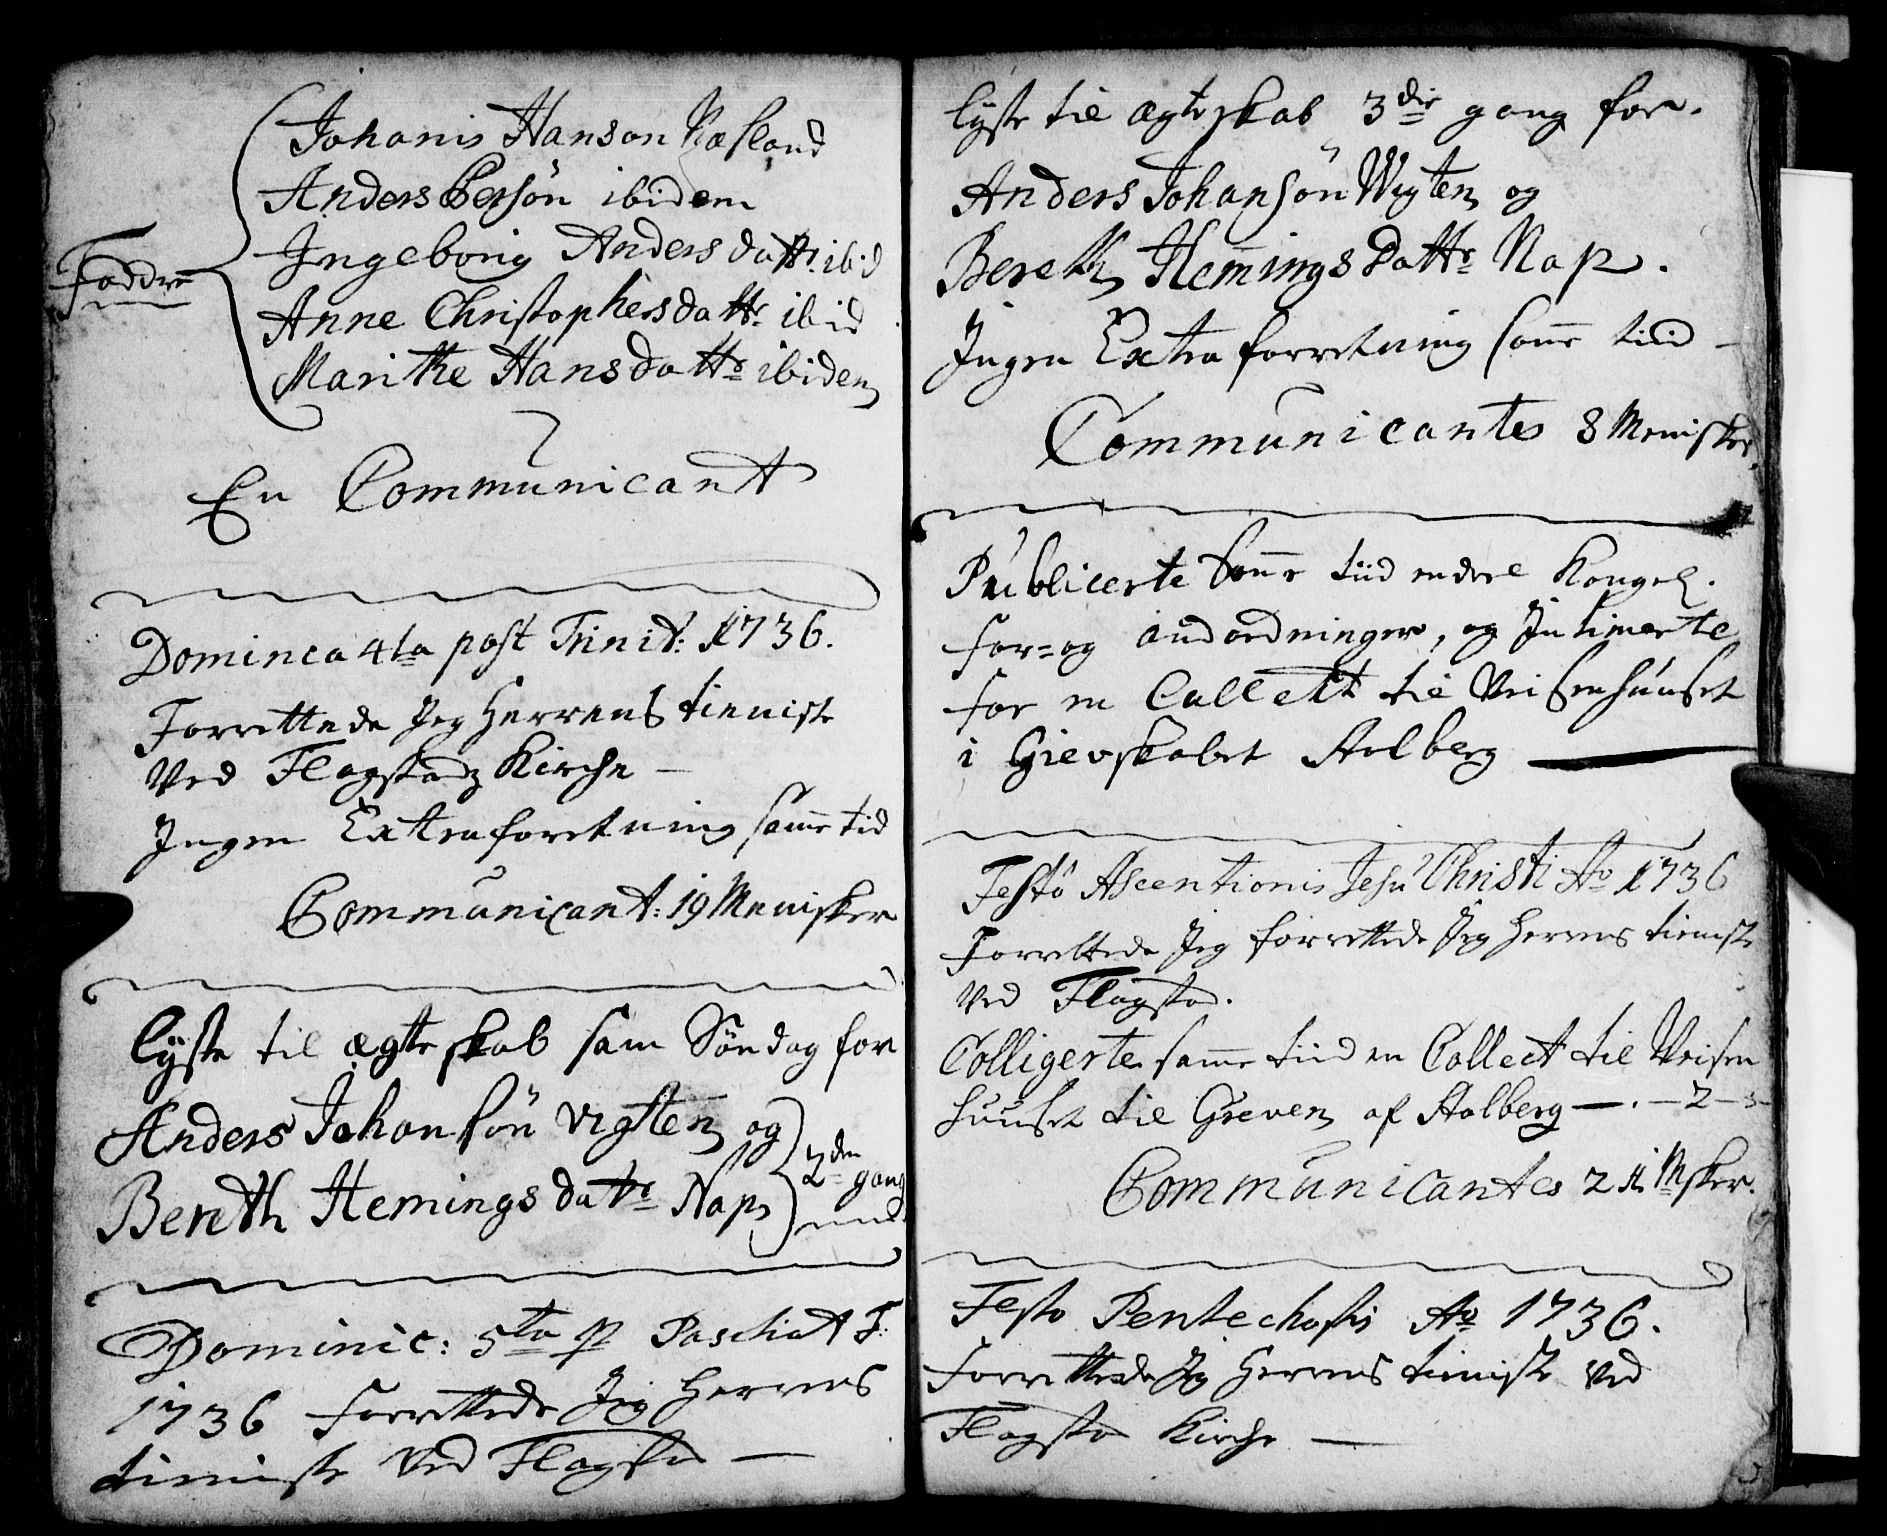 Johanis Hanson Næsland
Anders Persön ibidem
Ingeborig Andersdattr. ibid
Faddre
Anne Christophersdattr. ibid
Marithe Hansdattr ibidem
En Communicant
Dominica 4ta post Trinit: 1736.
Forrettede Jeg Herrens tieniste
Ved Flagstadz Kirche
Ingen Extraforetning samme tid
Communicant: 19 Menisker
lyste til ægteskab sam Söndag for
Anders Johansön Vigten og
Bereth Hemings datr Nap 2den gang
Dominic: 5ta p Paschat F:
1736 Forrettede Jeg Herrens
tieniste Ved Flagstad
lyste til ægteskab 3die gang for.
Anders Johansön Wigten og
Bereth HemingsDattr Nap.
Ingen Extra forretning samme tiid
Communicantes 8 Menisker
Publicerte samme tiid endeel Kongel.
For- og andordninger, og Intimerte
for en Collect til Veisenhuuset
i Grevskabet Aalberg
Festo Ascentionis Jesu Christi Ao 1736
Forrettede Jeg forrettede Jeg Herrens tieniste
Ved Flagstad.
Colligerte samme tiid en Collect til Veisen
huuset til Greven af Aalberg —.—2—3—
Communicantes 21 Msker.
Festo Pentechostis Ao 1736.
Forrettede Jeg Herrens tieniste Ved
Flagstad Kirche